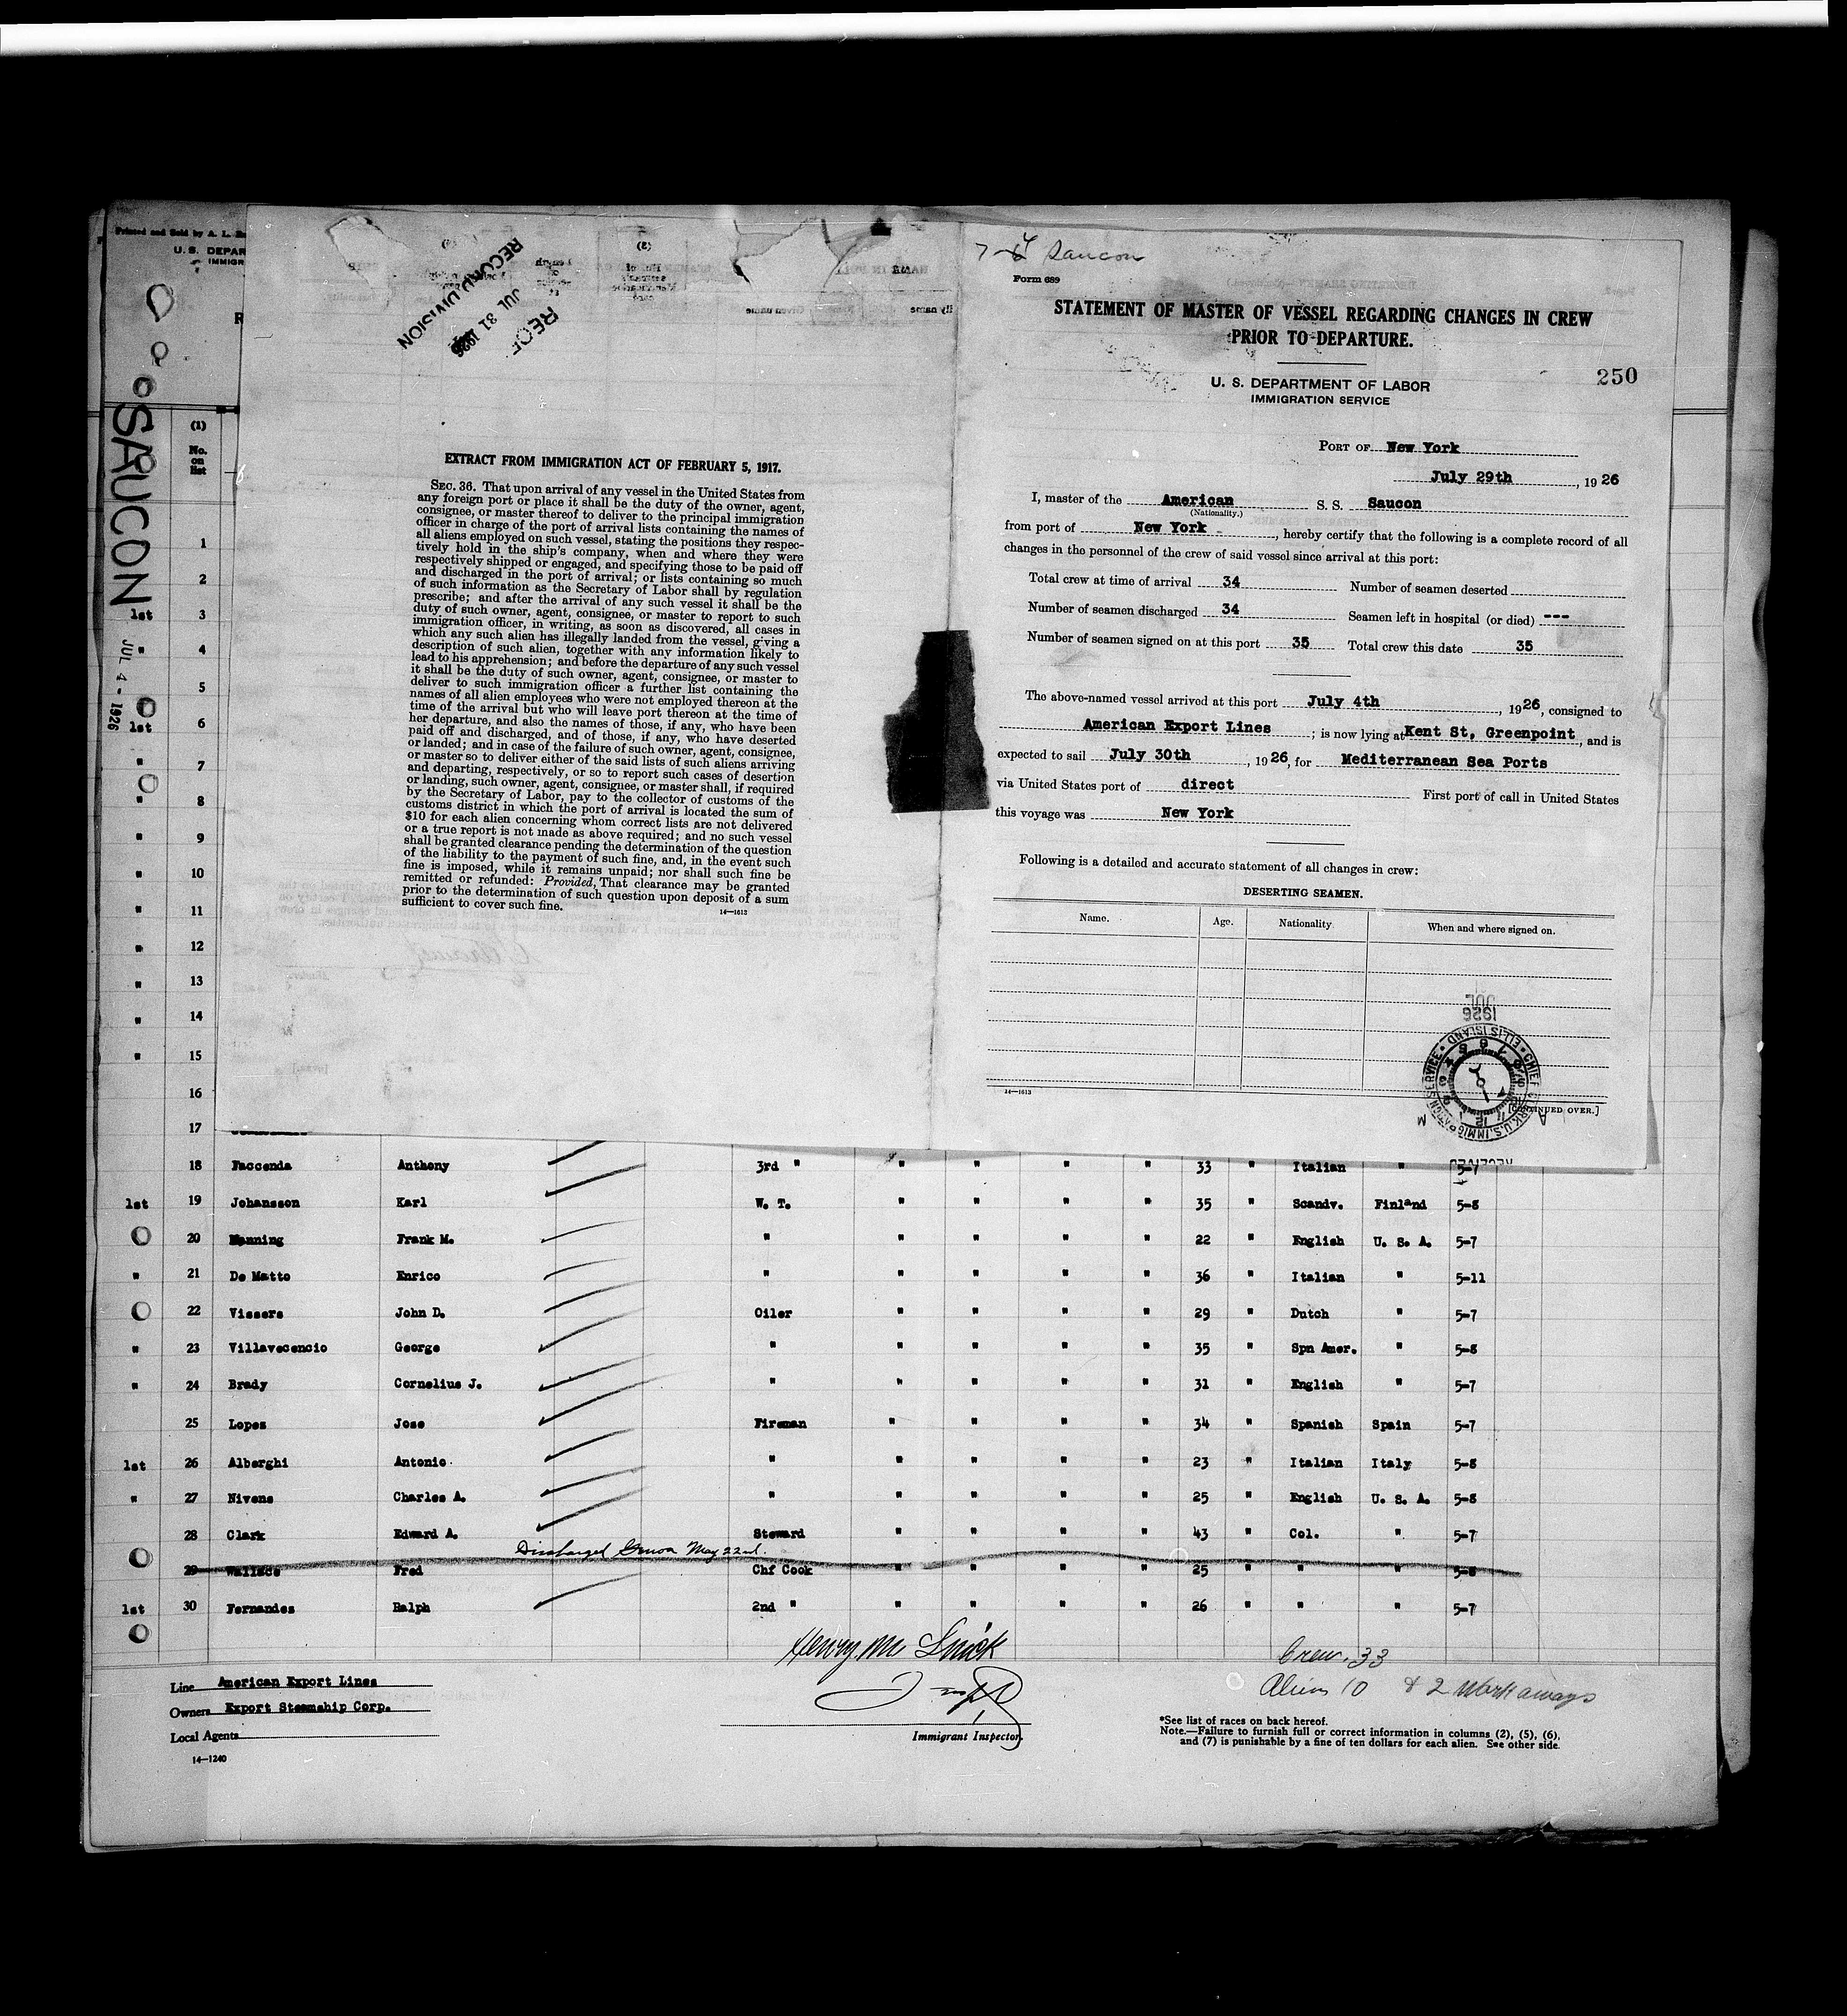 Printed and Sold by A. L.
U. S. DEPAR
IMMIGR
SAUCON
JUL 4 - 1926
(1)
No.
on
list
RECORD DIVISION
JUL 31 1926
EXTRACT FROM IMMIGRATION ACT OF FEBRUARY 5, 1917.
SEC. 36. That upon arrival of any vessel in the United States from
any foreign port or place it shall be the duty of the owner, agent,
consignee, or master thereof to deliver to the principal immigration
officer in charge of the port of arrival lists containing the names of
all aliens employed on such vessel, stating the positions they respec-
tively hold in the ship's company, when and where they were
respectively shipped or engaged, and specifying those to be paid off
and discharged in the port of arrival; or lists containing so much
of such information as the Secretary of Labor shall by regulation
prescribe; and after the arrival of any such vessel it shall be the
duty of such owner, agent, consignee, or master to report to such
immigration officer, in writing, as soon as discovered, all cases in
which any such alien has illegally landed from the vessel, giving a
description of such alien, together with any information likely to
lead to his apprehension; and before the departure of any such vessel
it shall be the duty of such owner, agent, consignee, or master to
deliver to such immigration officer a further list containing the
names of all alien employees who were not employed thereon at the
time of the arrival but who will leave port thereon at the time of
her departure, and also the names of those, if any, who have been
paid off and discharged, and of those, if any, who have deserted
or landed; and in case of the failure of such owner, agent, consignee,
or master so to deliver either of the said lists of such aliens arriving
and departing, respectively, or so to report such cases of desertion
or landing, such owner, agent, consignee, or master shall, if required
by the Secretary of Labor, pay to the collector of customs of the
customs district in which the port of arrival is located the sum of
$10 for each alien concerning whom correct lists are not delivered
or a true report is not made as above required; and no such vessel
shall be granted clearance pending the determination of the question
of the liability to the payment of such fine, and, in the event such
fine is imposed, while it remains unpaid; nor shall such fine be
remitted or refunded: Provided, That clearance may be granted
prior to the determination of such question upon deposit of a sum
sufficient to cover such fine.
14—1613
7-4 Saucon
Form 689
STATEMENT OF MASTER OF VESSEL REGARDING CHANGES IN CREW
PRIOR TO DEPARTURE.
250
U. S. DEPARTMENT OF LABOR
IMMIGRATION SERVICE
PORT OF New York
July 29th, 1926
I, master of the American S. S. Saucon
(Nationality.)
from port of New York, hereby certify that the following is a complete record of all
changes in the personnel of the crew of said vessel since arrival at this port:
Total crew at time of arrival 34 Number of seamen deserted
Number of seamen discharged 34 Seamen left in hospital (or died) ---
Number of seamen signed on at this port 35 Total crew this date 35
The above-named vessel arrived at this port July 4th, 1926, consigned to
American Export Lines; is now lying at Kent St, Greenpoint, and is
expected to sail July 30th, 1926, for Mediterranean Sea Ports
via United States port of direct First port of call in United States
this voyage was New York
Following is a detailed and accurate statement of all changes in crew:
DESERTING SEAMEN.
Name. Age. Nationality When and where signed on.
JUL
1926
CHIEF CLERK, U.S. IMMIGRATION SERVICE • ELLIS ISLAND •
14—1613
[CONTINUED OVER.]
1
2
1st 3
" 4
5
1st 6
" 7
" 8
" 9
" 10
" 11
" 12
" 13
" 14
" 15
16
17
18 Faccenda Anthony 3rd " " " " " 33 " Italian " 5-7
1st 19 Johansson Karl W. T. " " " " 35 " Scandv. Finland 5-8
20 Manning Frank M. " " " " " 22 " English U. S. A. 5-7
" 21 De Matto Enrico " " " " " 36 " Italian " 5-11
22 Vissers John D. Oiler " " " " 29 " Dutch " 5-7
" 23 Villavecencio George " " " " " 35 " Spn Amer. " 5-8
" 24 Brady Cornelius J. " " " " " 31 " English " 5-7
25 Lopez Jose Fireman " " " " 34 " Spanish Spain 5-7
1st 26 Alberghi Antonio " " " " " 23 " Italian Italy 5-8
" 27 Nivens Charles A. " " " " " 25 " English U. S. A. 5-8
28 Clark Edward A. Steward " " " " 43 " Col. " 5-7
Discharged Genoa May 22nd.
29 Wallace Fred Chf Cook " " " " 25 " " " 5-8
1st 30 Fernandes Ralph 2nd " " " " " 26 " " " 5-7
Crew. 33
Aliens 10 & 2 Workaways
Line American Export Lines
Owners Export Steamship Corp.
Local Agents
14—1240
Immigrant Inspector.
*See list of races on back hereof.
Note.—Failure to furnish full or correct information in columns (2), (5), (6),
and (7) is punishable by a fine of ten dollars for each alien. See other side.